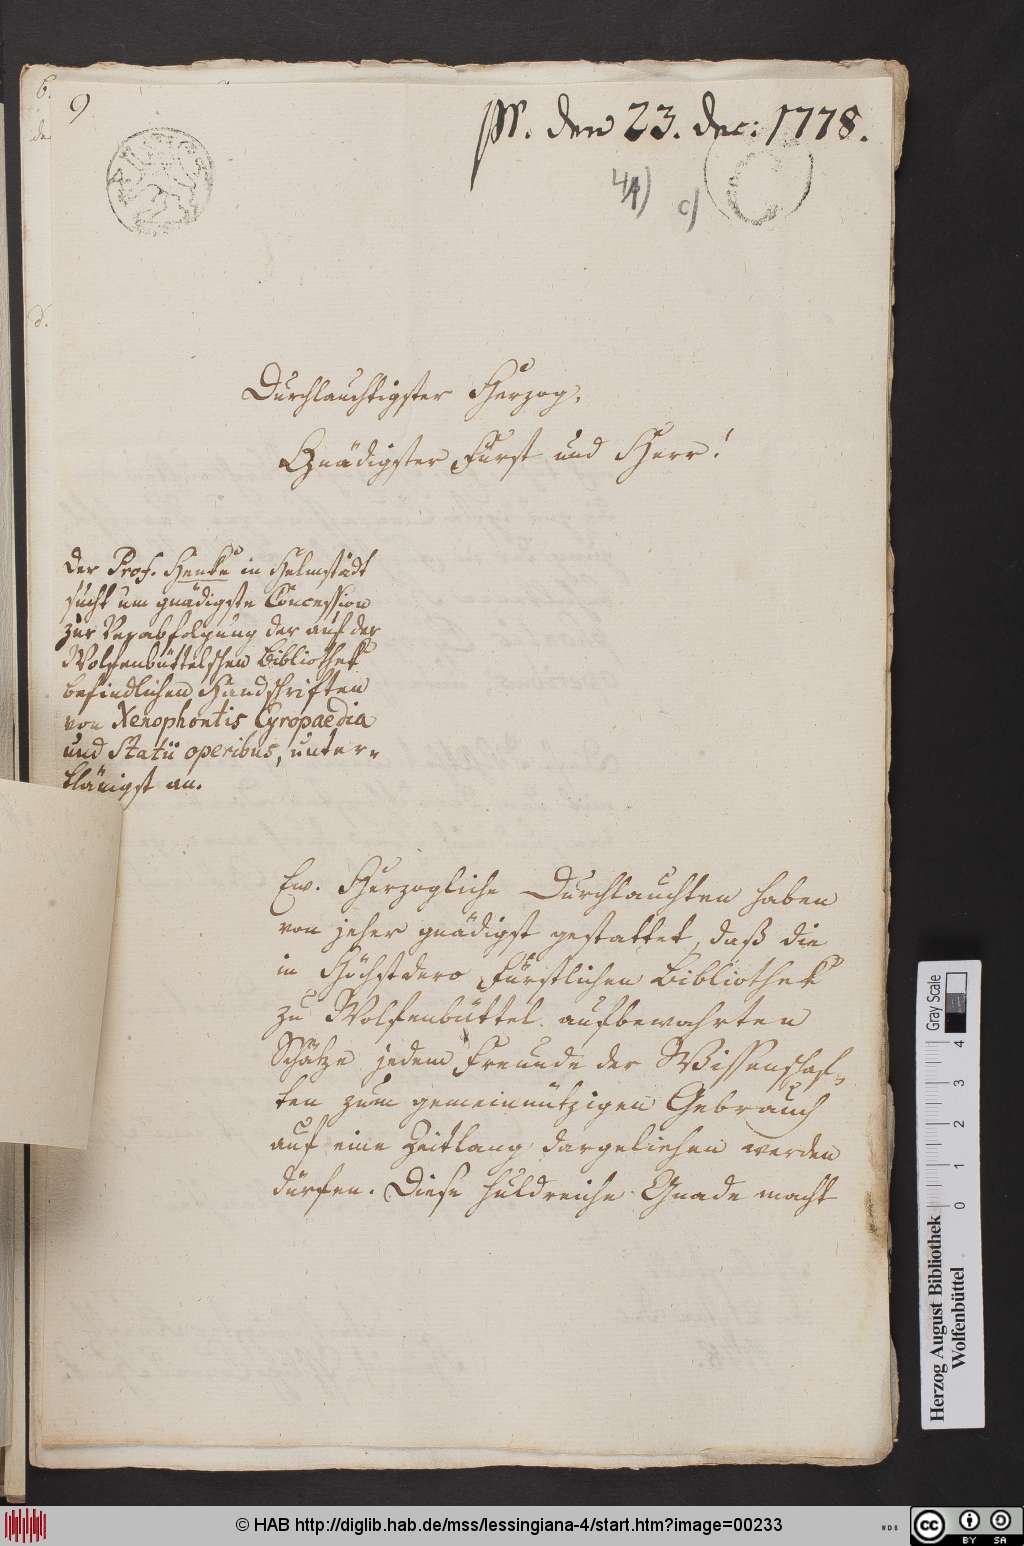 9
ps. den 23. dec: 1778.
4)
c)
Durchlauchtigster Herzog,
Gnädigster Fürst und Herr!
Der Prof. Henke in Helmstädt
sucht um gnädigste Concession
zur Verabfolgung der auf der
Wolfenbüttelschen Bibliothek
befindlichen Handschriften
von Xenophontis Cyropaedia
und Statii operibus, unter-
thänigst an.
Ew. Herzogliche Durchlauchten haben
von jeher gnädigst gestattet, daß die
in Höchstdero Fürstlichen Bibliothek
zu Wolfenbüttel aufbewahrten
Schätze jedem Freunde der Wissenschaf-
ten zum gemeinnützigen Gebrauch
auf eine Zeitlang dargeliehen werden
dürfen. Diese huldreiche Gnade macht
Herzog August Bibliothek
Wolfenbüttel
0 1 2 3 4
Gray Scale
© HAB http://diglib.hab.de/mss/lessingiana-4/start.htm?image=00233
cc BY SA